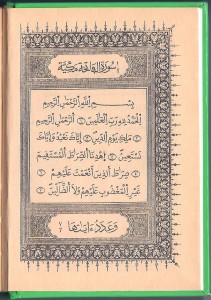 سورة الفاتحة مكية
بِسْمِ اللَّهِ الرَّحْمَٰنِ الرَّحِيمِ
الْحَمْدُ لِلَّهِ رَبِّ الْعَالَمِينَ الرَّحْمَٰنِ الرَّحِيمِ
مَالِكِ يَوْمِ الدِّينِ إِيَّاكَ نَعْبُدُ وَإِيَّاكَ
نَسْتَعِينُ اهْدِنَا الصِّرَاطَ الْمُسْتَقِيمَ
صِرَاطَ الَّذِينَ أَنْعَمْتَ عَلَيْهِمْ
غَيْرِ الْمَغْضُوبِ عَلَيْهِمْ وَلَا الضَّالِّينَ
وعدد آياتها ٧